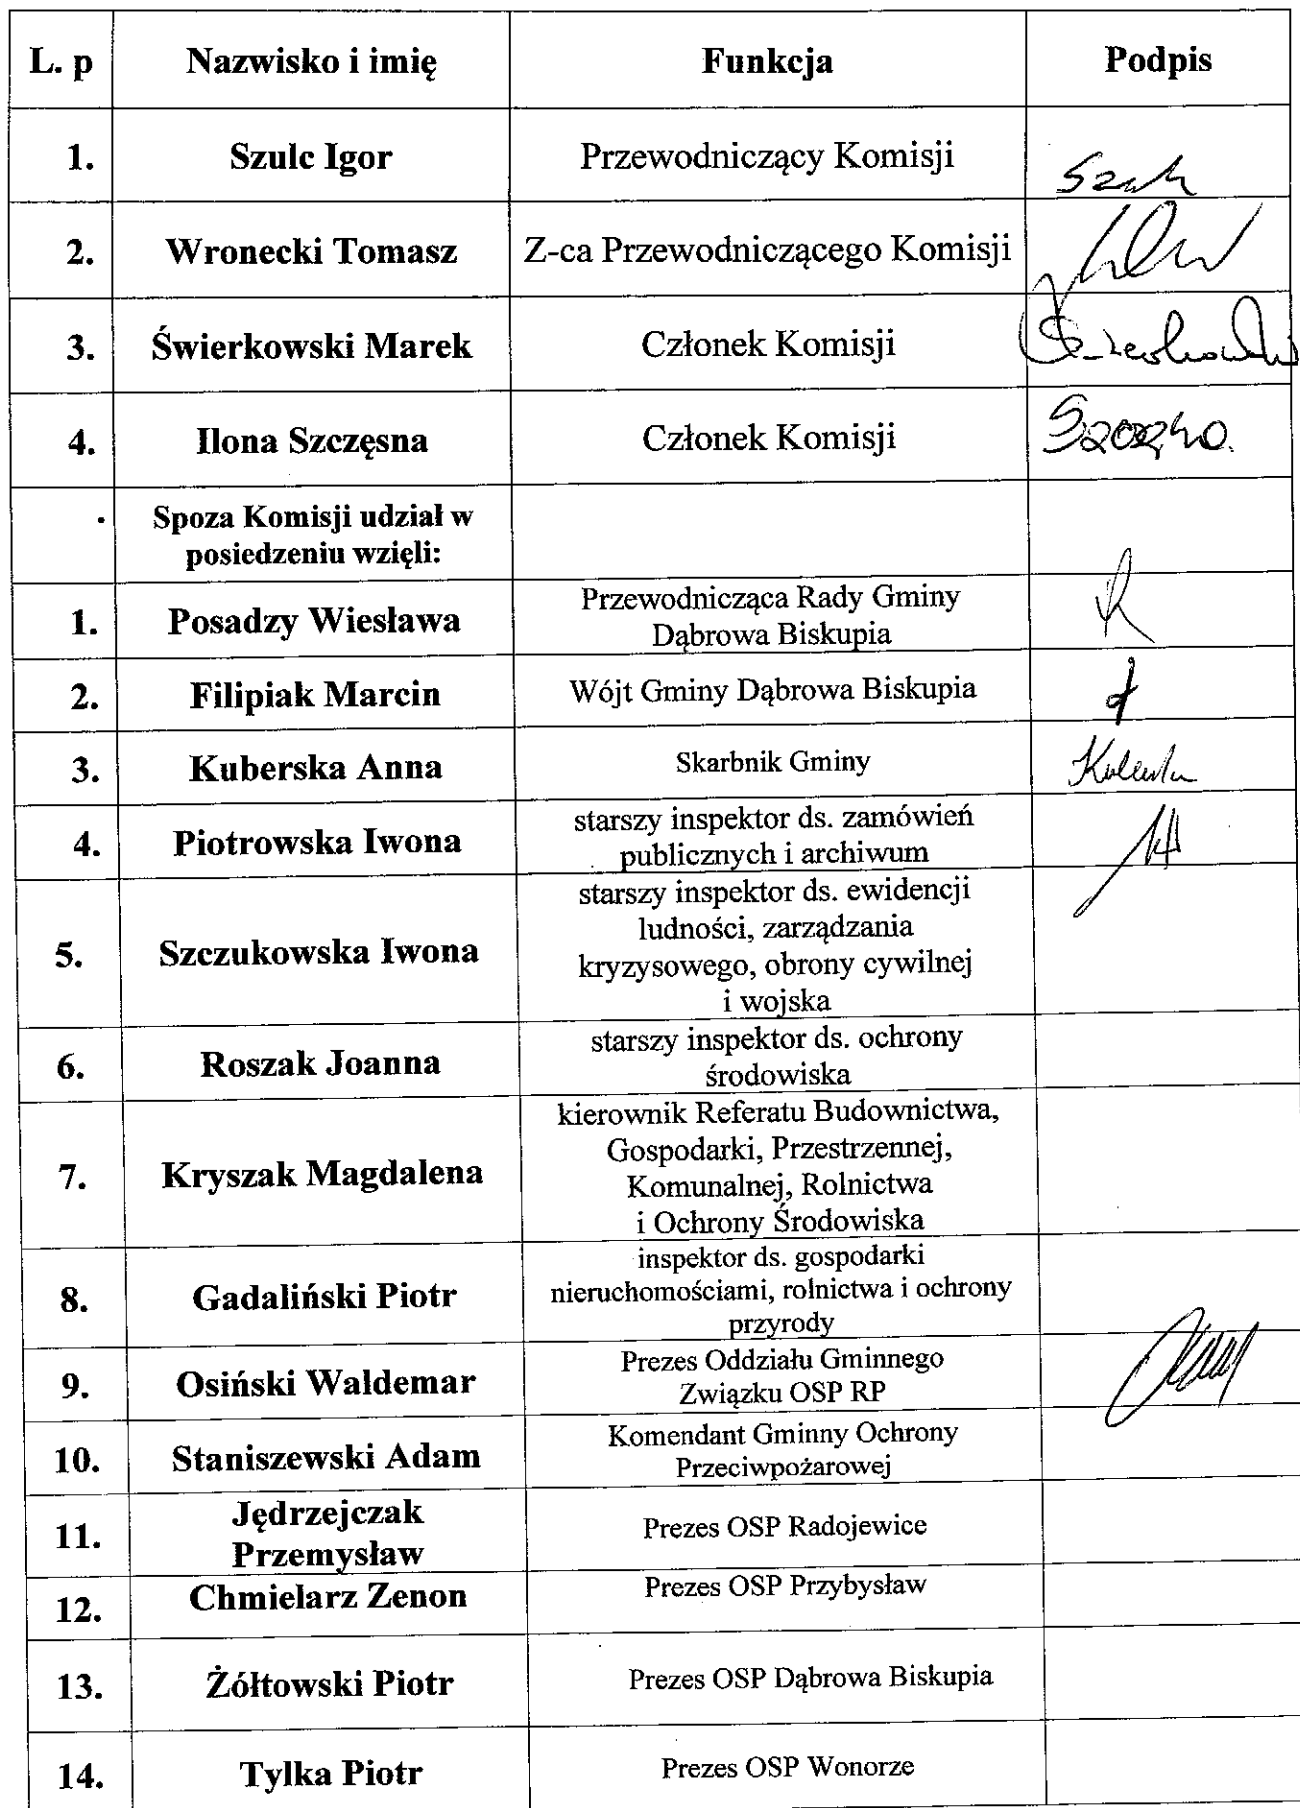 L. p Nazwisko i imię Funkcja Podpis
1. Szulc Igor Przewodniczący Komisji
2. Wronecki Tomasz Z-ca Przewodniczącego Komisji
3. Świerkowski Marek Członek Komisji
4. Ilona Szczęsna Członek Komisji
Spoza Komisji udział w
posiedzeniu wzięli:
1. Posadzy Wiesława Przewodnicząca Rady Gminy
Dąbrowa Biskupia
2. Filipiak Marcin Wójt Gminy Dąbrowa Biskupia
3. Kuberska Anna Skarbnik Gminy
4. Piotrowska Iwona starszy inspektor ds. zamówień
publicznych i archiwum
5. Szczukowska Iwona starszy inspektor ds. ewidencji
ludności, zarządzania
kryzysowego, obrony cywilnej
i wojska
6. Roszak Joanna starszy inspektor ds. ochrony
środowiska
7. Kryszak Magdalena kierownik Referatu Budownictwa,
Gospodarki, Przestrzennej,
Komunalnej, Rolnictwa
i Ochrony Środowiska
8. Gadaliński Piotr inspektor ds. gospodarki
nieruchomościami, rolnictwa i ochrony
przyrody
9. Osiński Waldemar Prezes Oddziału Gminnego
Związku OSP RP
10. Staniszewski Adam Komendant Gminny Ochrony
Przeciwpożarowej
11. Jędrzejczak
Przemysław Prezes OSP Radojewice
12. Chmielarz Zenon Prezes OSP Przybysław
13. Żółtowski Piotr Prezes OSP Dąbrowa Biskupia
14. Tylka Piotr Prezes OSP Wonorze